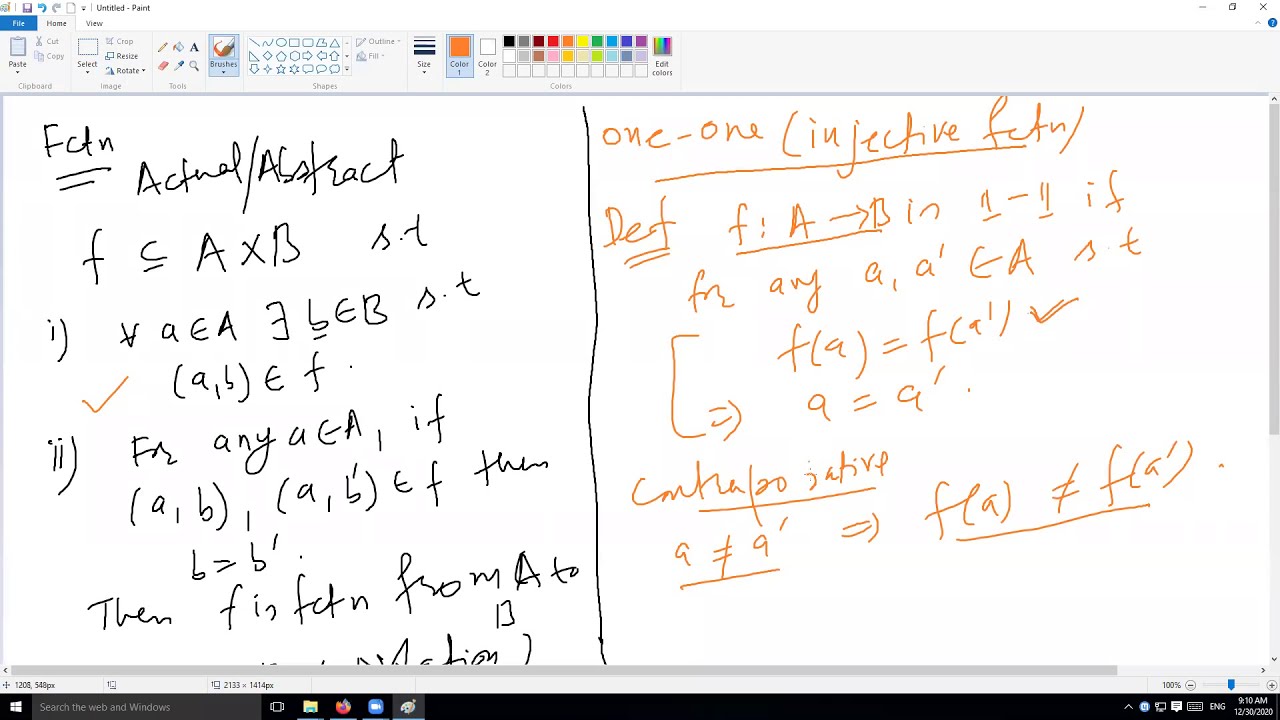 Untitled - Paint
File Home View
Paste Cut Copy Select Crop Resize Rotate Brushes Outline Fill Size Color 1 Color 2 Edit colors
Clipboard Image Tools Shapes Colors
Fctn
Actual/Abstract
f ⊆ A X B s.t
i) ∀ a ∈ A ∃ b ∈ B s.t
(a,b) ∈ f .
ii) For any a ∈ A, if
(a, b), (a, b') ∈ f then
b = b'.
Then f is fctn from A to
B
one-one (injective fctn)
Def f : A → B is 1-1 if
for any a, a' ∈ A s.t
f(a) = f(a')
⇒ a = a' .
Contrapositive
a ≠ a' ⇒ f(a) ≠ f(a') .
1208, 548px 2133 × 1414px 100%
Search the web and Windows ENG 9:10 AM
12/30/2020